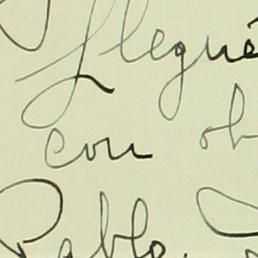 Llegué
con
Pablo.